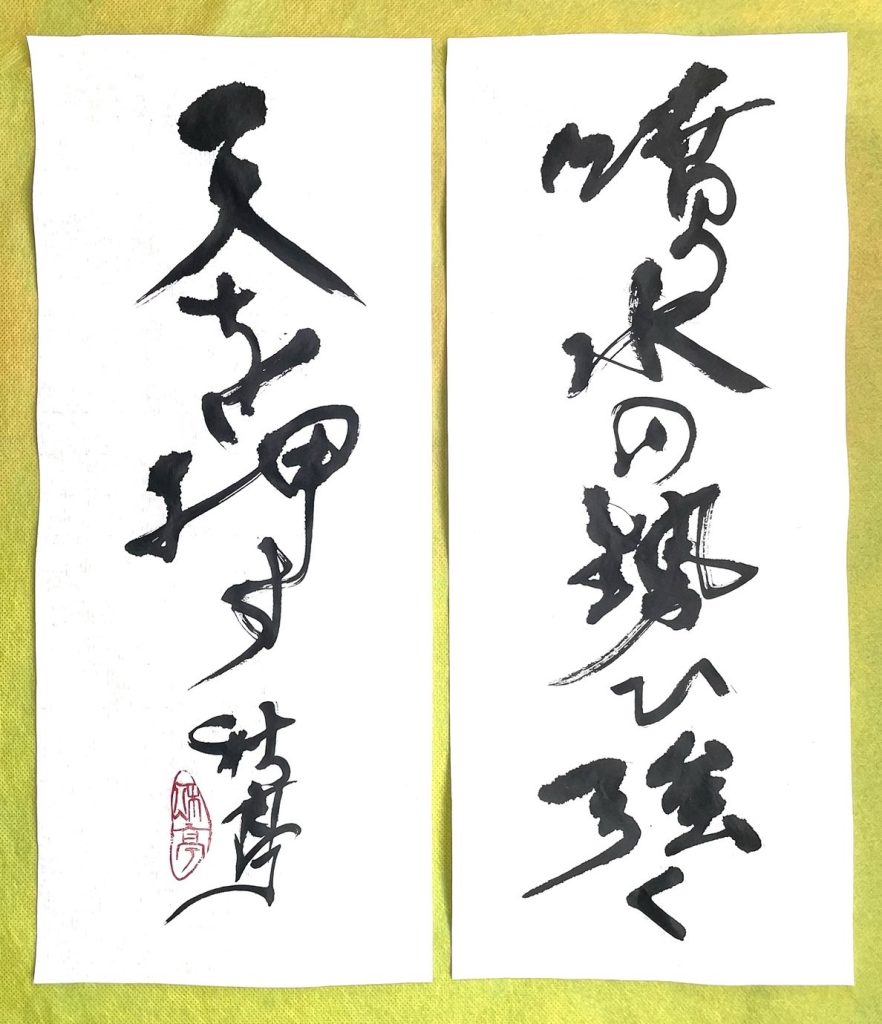 噴水の勢ひ強く
天を押す